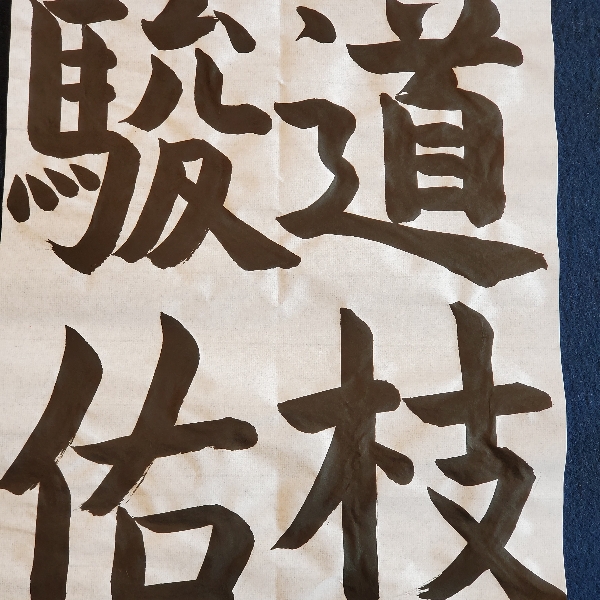 道枝
駿佑